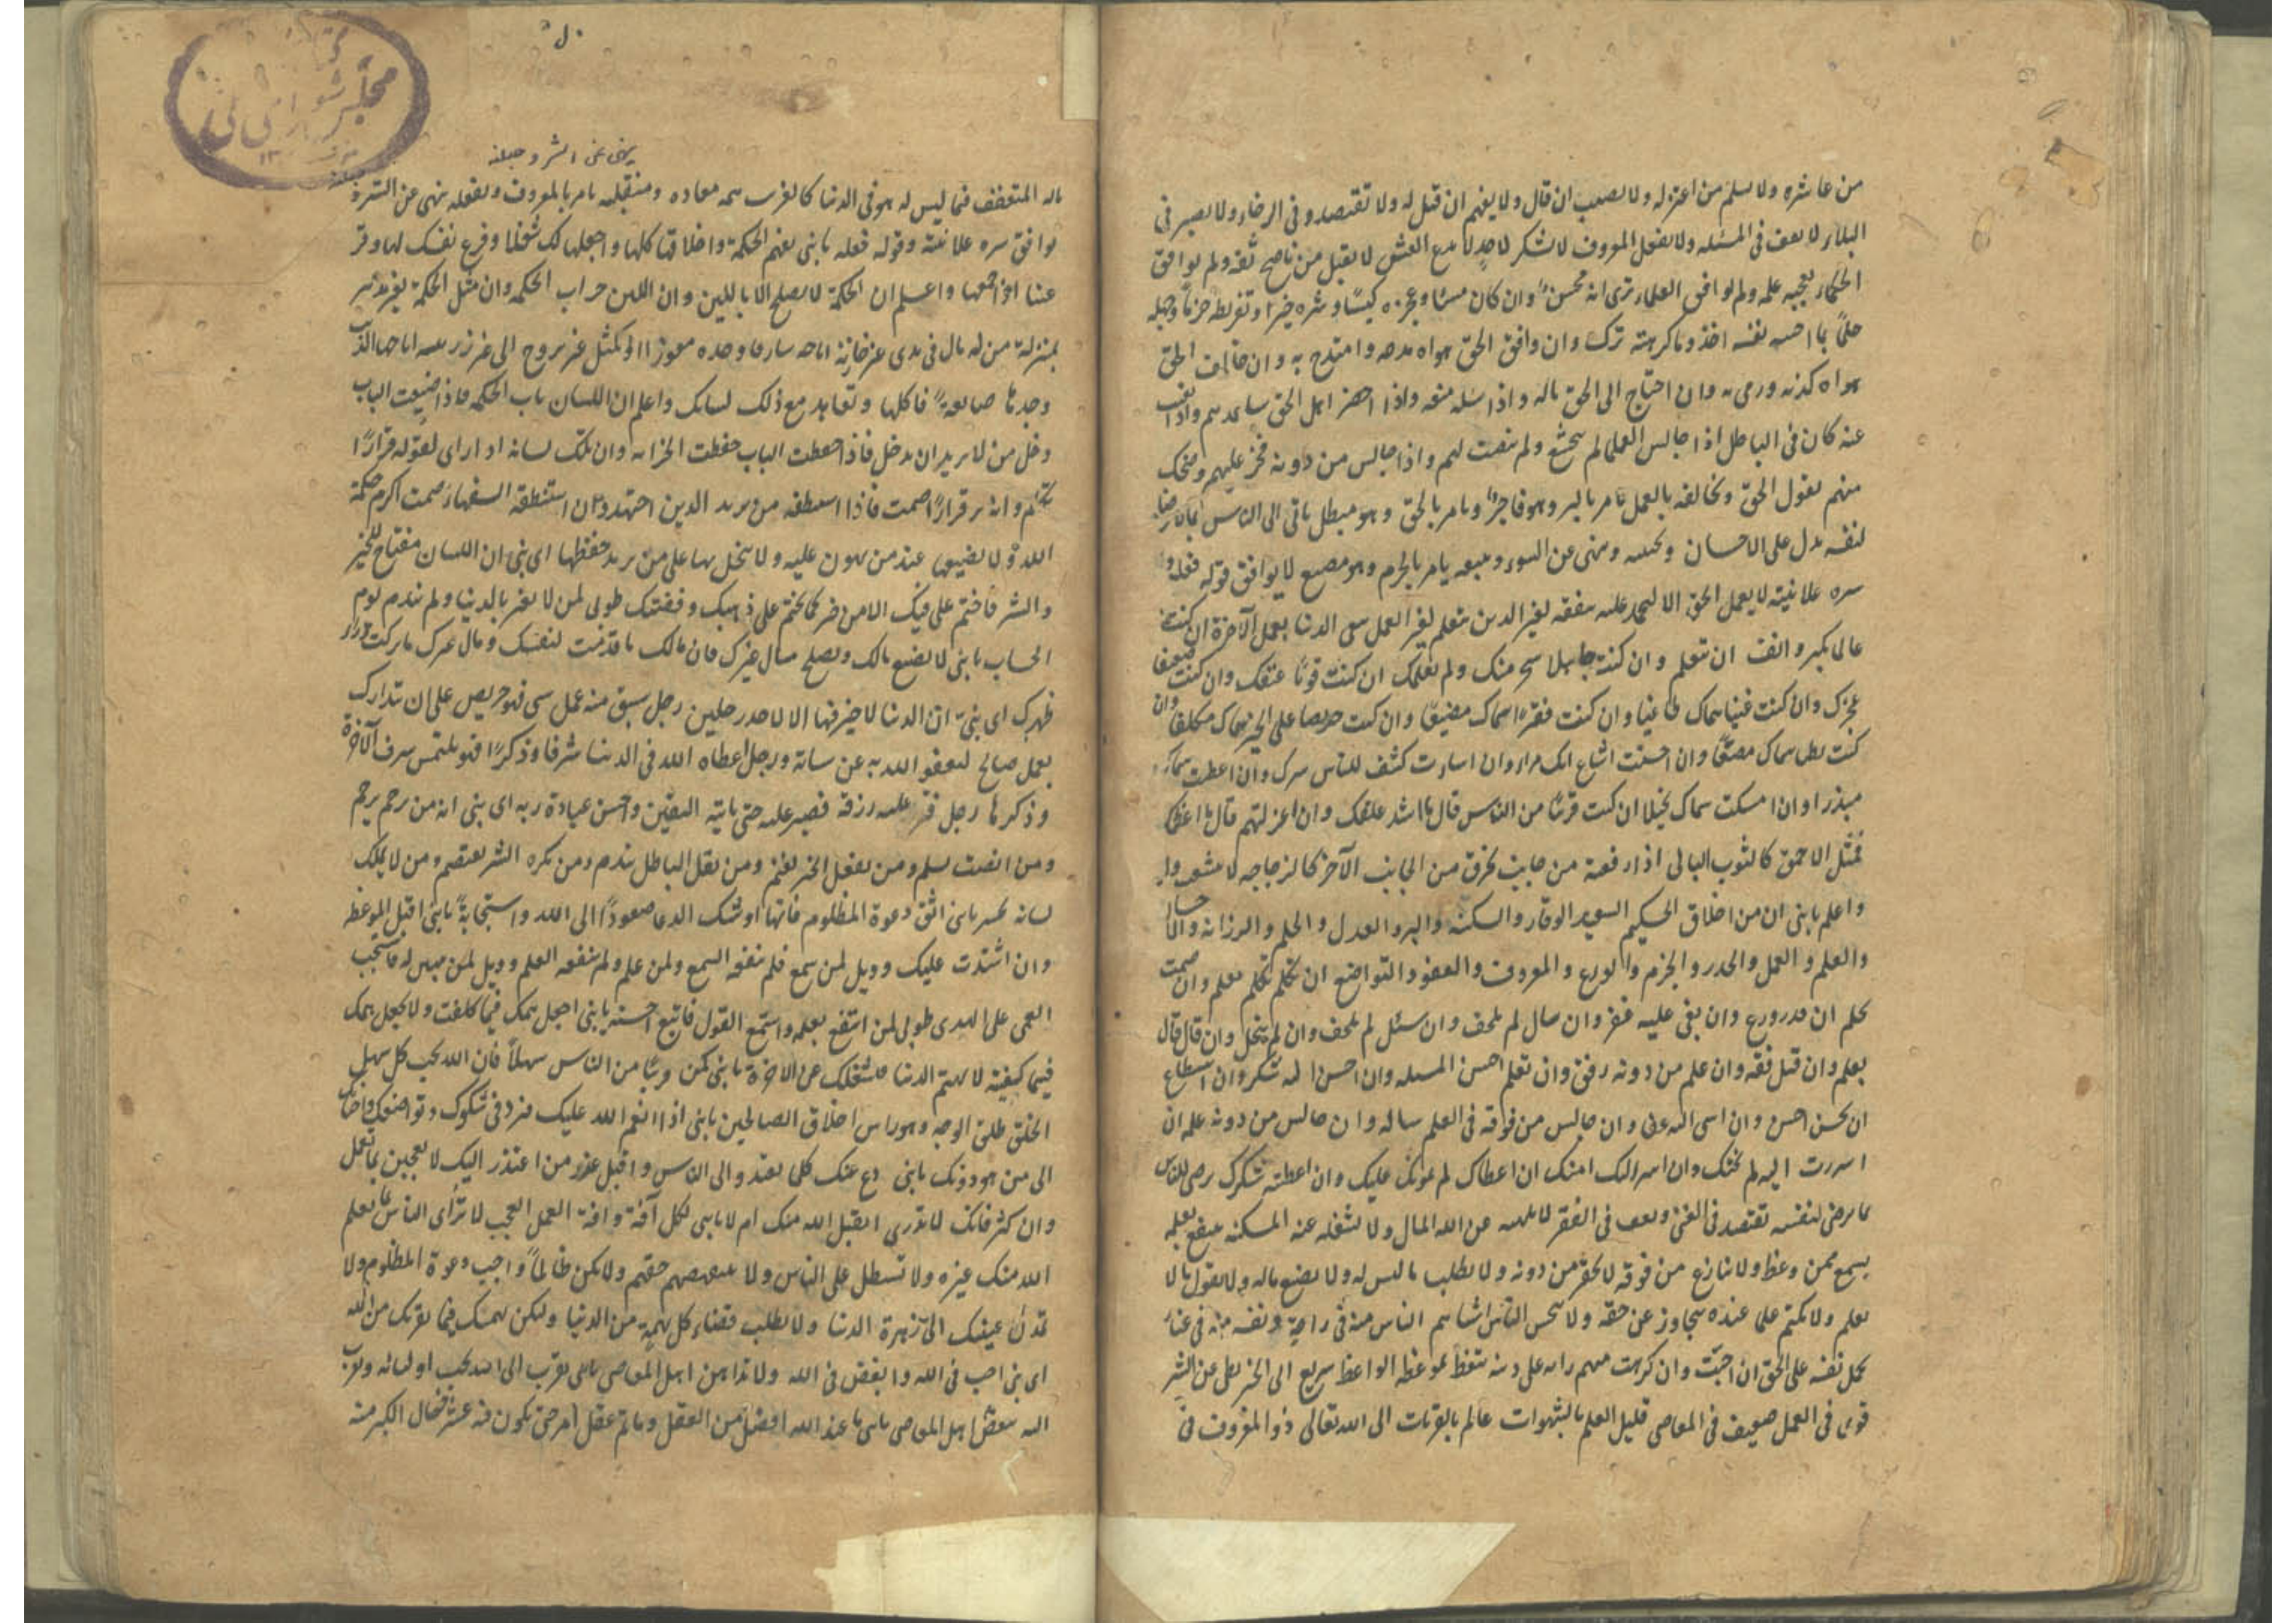 من عاشره ولا يسلم من اعتزله ولا يصيب ان قال ولا يفهم ان قيل له ولا تقتصد و فى الرخاء ولا يصبر فى
البلاء لا يعف فى المسئله ولا يفعل المعروف لا شكر لاحد لا يدع الغش لا يقبل من ناصح ثقه ولم يوافق
الحكماء يعجبه علمه ولم يوافق العلماء يرى انه محسن وان كان مسئا وعجزه كيسًا وشره خيرا وتفريطه حزماً وجهله
حلماً ما احب نفسه اخذ وما كرهته ترك وان وافق الحق هواه مدحه وامتدح به وان خالف الحق
هواه كذبه ورمى به وان احتاج الى الحق ماله واذا سئله منعه واذا اهل الحق واذا
عنه كان فى الباطل اذا جالس العلما لم يخشع ولم ينصت لهم واذا جالس من دونه فخر عليهم وضحك
منهم يقول الحق ويخالفه بالعمل يامر بالبر وهو فاجرا ويامر بالحق وهو مبطل ياتى الى الناس
لنفسه يدل على الاحسان ويجتنبه وينهى عن السوء ويتبعه يامر بالحزم وهو مضيع لا يوافق قوله فعله ولا
سره علانيته لا يعمل الحق الا ليحمد عليه يتفقه لغير الدين يتعلم لغير العمل يبتغى الدنيا بعمل الآخرة ان كنت
عالى يكبر وانف ان تتعلم وان كنت جاهلا سخر منك ولم يعلمك ان كنت قويًا عنقك وان كنت ضعيفا
عجزك وان كنت غنيا سماك طاغيا وان كنت فقيرا سماك مضيقا وان كنت حريصا على الخير سماك متكلفا وان
كنت سماك مضيعًا وان احسنت اشاع انك مراء وان اسات كشف للناس سرك وان اعطيت سماك
مبذرا وان امسكت سماك بخيلا ان كنت قريبًا من الناس قال ما اشد علقك وان اعتزلتهم قال ما
فمثل الاحمق كالثوب البالى اذا رقعته من جانب تخرق من الجانب الآخر كالزجاجه لا تشعب ولا
واعلم يا بنى ان من اخلاق الحكيم الوقار والسكينه والبر والعدل والحلم والرزانه والاحسان
والعلم والعمل والحذر والحزم والورع والمعروف والعفو والتواضع ان تكلم تكلم بعلم وان صمت
بحلم ان قدر ورع وان بغى عليه غفر وان سال لم يلحف وان سئل لم يلحف وان لم يبخل وان قال قال
بعلم وان قيل فقه وان علم من دونه رفق وان تعلم احسن المسئله وان احسن اليه شكر وان استطاع
ان يحسن احسن وان اسى اليه عفى وان جالس من فوقه فى العلم ساله وان جالس من دونه علمه ان
اسررت اليه لم يخنك وان اسر اليك امنك ان اعطاك لم يمن عليك وان اعطيته شكرك يرضى للناس
ما يرضى لنفسه تقتصد فى الغنى ويعف فى الفقر لا يلهيه عن الله المال ولا يشغله عنه المسكنه ينتفع بعلمه
يسمع ممن وعظ ولا ينازع من فوقه لا يحقر من دونه ولا يطلب ما ليس له ولا يضيع ماله ولا يقول ما لا
يعلم ولا يكتم علما عنده يتجاوز عن حقه ولا الناس اشاهم الناس منه فى راحة ونفسه منه فى عناء
يحمل نفسه على الحق ان احبت وان كرهت على دينه يتعظ بموعظه الواعظ سريع الى الخير بطى عن الشر
قوى فى العمل ضعيف فى المعاصى قليل العلم بالشهوات عالم بالقربات الى الله تعالى ذو المعروف فى
ينهى عن الشر وجعله
ماله المتعفف فيما ليس له هو فى الدنيا كالغريب همه معاده ومنقلبه يامر بالمعروف ويفعله ينهى عن الشر
يوافق سره علانيته وقوله فعله يا بنى تفهم الحكمة واخلاقها كلها واجعلها لك شغلا وفرغ نفسك لها وقر
عينا اذا جمعتها واعلم ان الحكمة لا يصلح الا باللين وان اللين الحكمه وان مثل الحكمة بغير
بمنزلة من له مال فى يدى غير خازنه
وجدها ضائعة فاكلها وتعاهد مع ذلك لسانك واعلم ان اللسان باب الحكمه فاذا ضيعت الباب
دخل من لا يريد ان يدخل فاذا حفظت الباب حفظت الخزانه وان ملك لسانه اذا راى لقوله قرارًا
تكلم وان لم ير قرارًا صمت فاذا استنطقه من يريد الدين اجتهد وان استنطقه السفهاء صمت اكرم حكمة
الله ولا يضيعها عند من يهون عليه ولا تبخل بها على من يريد حفظها اى بنى ان اللسان مفتاح للخير
والشر فاختم على فيك الا من خير كما تختم على ذهبك وفضتك طوبى لمن لا يغتر بالدنيا ولم يندم يوم
الحساب يا بنى لا يضيع مالك ويصلح مال غيرك فان مالك ما قدمت لنفسك ومال غيرك ما تركت وراء
ظهرك اى بنى ان الدنيا لا خير فيها الا لاحد رجلين رجل سبق منه عمل سى فهو حريص على ان تدارك
بعمل صالح ليعفو الله به عن سيئاته ورجل اعطاه الله فى الدنيا شرفا وذكرًا فهو يلتمس شرف الآخرة
وذكرها رجل قتر عليه رزقه فصبر عليه حتى ياتيه اليقين واحسن عبادة ربه اى بنى انه من رحم يرحم
ومن انصت سلم ومن يفعل الخير يغنم ومن يقل الباطل يندم ومن يكره الشر يعتصم ومن لا يملك
لسانه يخسر يا بنى اتق دعوة المظلوم فانها اوشك الدعا صعوداً الى الله واستجابةً يا بنى اقبل الموعظه
وان اشتدت عليك وويل لمن سمع فلم ينفعه السمع ولمن علم ولم ينفعه العلم وويل لمن تبين له فاستحب
العمى على الهدى طوبى لمن انتفع بعلمه واستمع القول فاتبع احسنه يا بنى اجعل همك فيما كلفت ولا تجعل همك
فيما كيفيته لا يهتم الدنيا فتشغلك عن الاخرة يا بنى كن قريبًا من الناس سهلاً فان الله يحب كل سهل
الخلق طلق الوجه وهو راس اخلاق الصالحين يا بنى اذا انعم الله عليك فزد فى شكرك وتواضعك
الى من هو دونك يا بنى دع عنك كلما يعتذر الى الناس واقبل عذر من اعتذر اليك لا تعجبن بما تعمل
وان كثر فانك لا تدرى ايقبل الله منك ام لا يا بنى لكل آفة وافة العمل العجب لا ترائى الناس بما يعلم
الله منك غيره ولا تستطل على الناس ولا حقهم ولا تكن ظالماً واجب دعوة المظلوم ولا
تمدن عينيك الى زهرة الدنيا ولا يطلب قضاء كل نهمة من الدنيا وليكن همك فيما يقربك من الله
اى بنى احب فى الله وابغض فى الله ولا تداهن اهل المعاصى يا بنى تقرب الى الله بحب اوليائه وتقرب
اليه ببغض اهل المعاصى يا بنى ما عبد الله افضل من العقل وما تم عقل امرء حتى يكون فيه عشر خصال الكبر منه